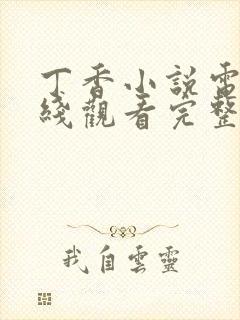 丁香小說電
綫觀看完整
我自雲靈